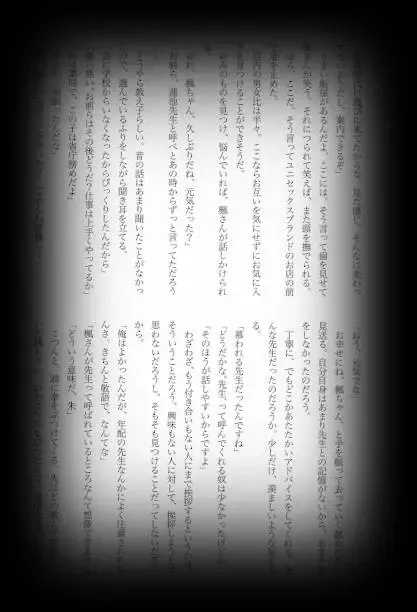 うまい珈琲があるんだよ、ここには。そう言って歯を見せて
楓さんが笑う。それにつられて笑えば、また頭を撫でられる。
ら、ここだ。そう言ってユニセックスブランドのお店の前
で足を止めた。
店内の男女比は半々。ここならお互いを気にせずにお気に入
つけることができそうだ。
みのものを見つけ、悩んでいれば、楓さんが話しかけられ
れ、楓ちゃん、久しぶりだね、元気だった？」
お前ら、蓮池先生と呼べとあの時からずっと言ってただろう
どうやら教え子らしい。昔の話はあまり聞いたことがなかっ
ので、選んでいるふりをしながら聞き耳を立てる。
に学校からいなくなったからびっくりしたんだから」
悪い悪い。お前らはその後どうだ？仕事は上手くやってるか」
は薬局で、この子は省庁務めだよ」
おう、元気でな
お幸せにね、楓ちゃん、と手を振って去っていく
見送る。自分自身はあまり先生との記憶がないから、
をしなかったのだろう。
丁寧に、でもどこかあたたかいアドバイスをしてくれる。
んな先生だったのだろうか。少しだけ、羨ましいような
る。
「慕われる先生だったんですね」
「どうだかな。先生、って呼んでくれる奴は少なかったけど
「そのほうが話しやすいからですよ」
わざわざ、もう付き合いもない人にまで挨拶するというのは
そういうことだろう。興味もない人に対して、挨拶しようと
思わないだろうし、そもそも見つけることだってしないだ
から。
「俺はよかったんだが、年配の先生なんかによく注意され
んさ、きちんと敬語で、なんてな」
「楓さんが先生って呼ばれているところなんて想像できま
「どういう意味だ、朱」
こつんと、頭に拳をぶつけてくる。